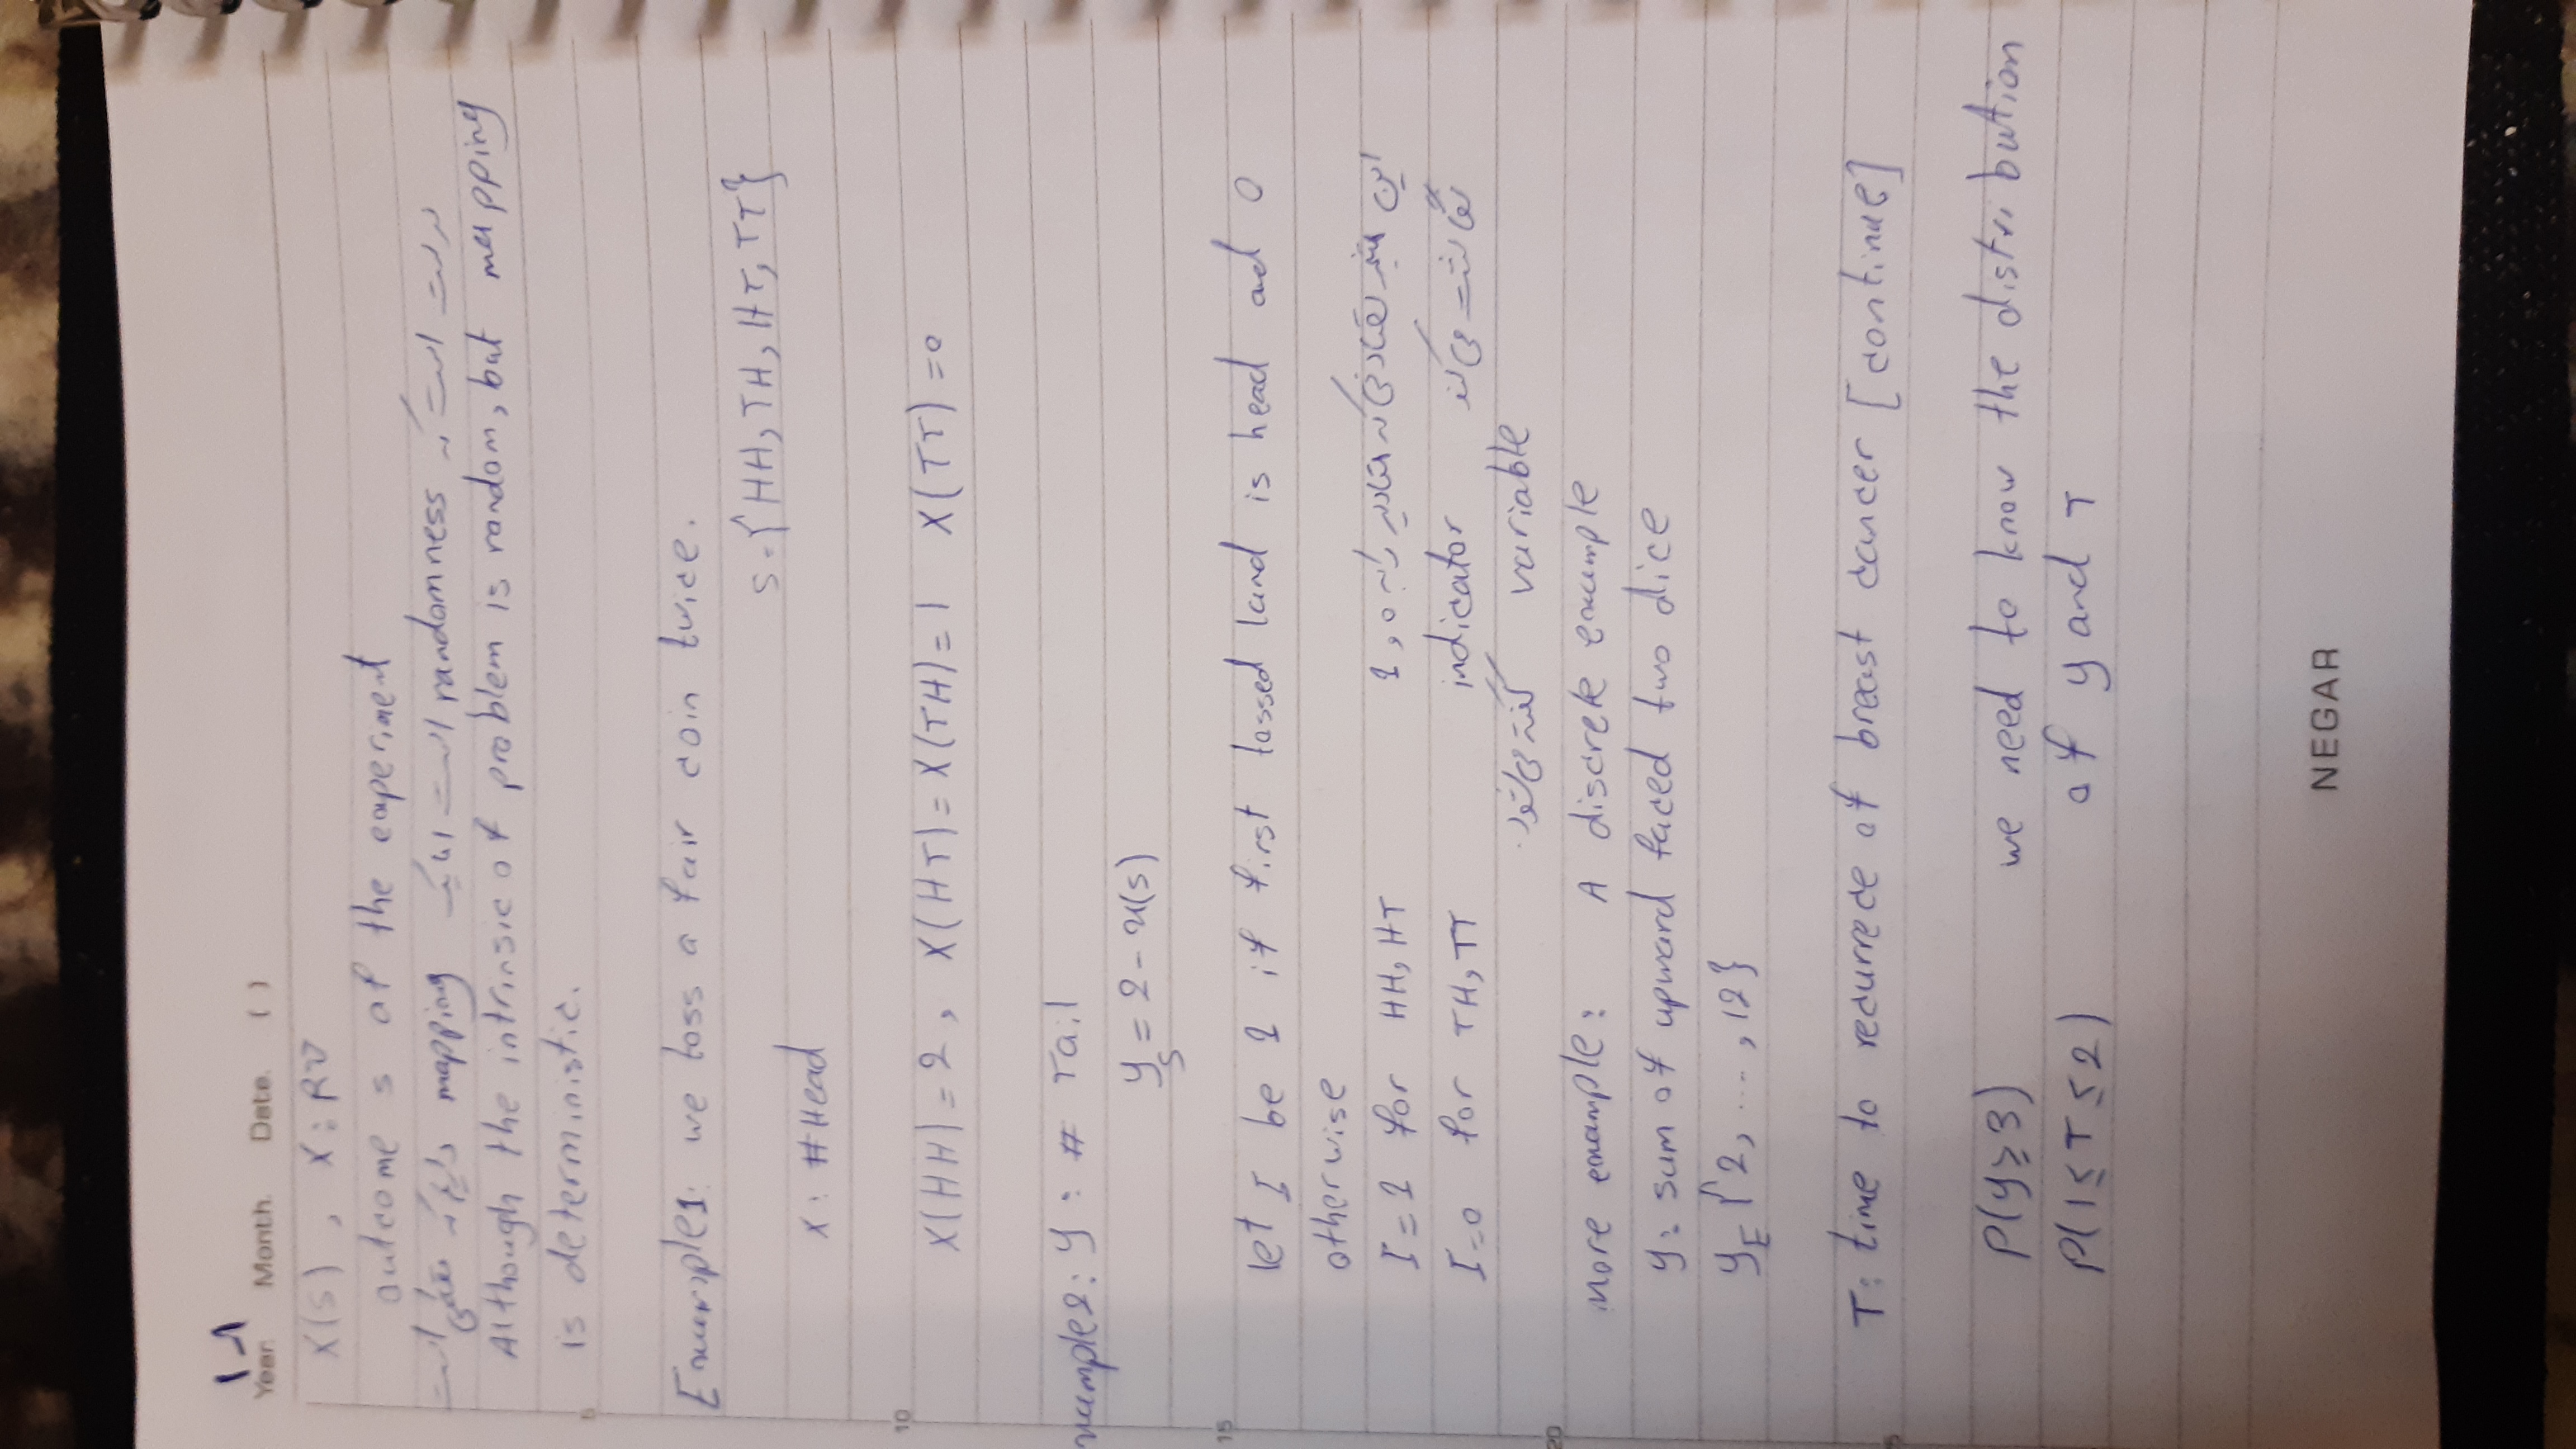 Year. Month. Date. ( )
X(s) , X: RV
outcome s of the experiment
درست است که randomness است اما یک mapping داریم که قطعی است
Although the intrinsic of problem is random, but mapping
is deterministic.
5
Example1: we toss a fair coin twice.
S={HH, TH, HT, TT}
X: #Head
10
X(HH)=2, X(HT)=X(TH)=1 X(TT)=0
xample2: y: # Tail
y_s = 2 - x(s)
15
let I be 1 if first tossed land is head and 0
otherwise
I=1 for HH, HT این متغیر تصادفی که مقادیر را به 0, 1
I=0 for TH, TT نگاشت می‌کند indicator
variable گفته می‌شود.
20
More example: A discrete example
y: sum of upward faced two dice
y ∈ {2, ..., 12}
T: time to recurrece of breast cancer [continue]
P(y≥3) we need to know the distribution
P(1≤T≤2) of y and T
NEGAR